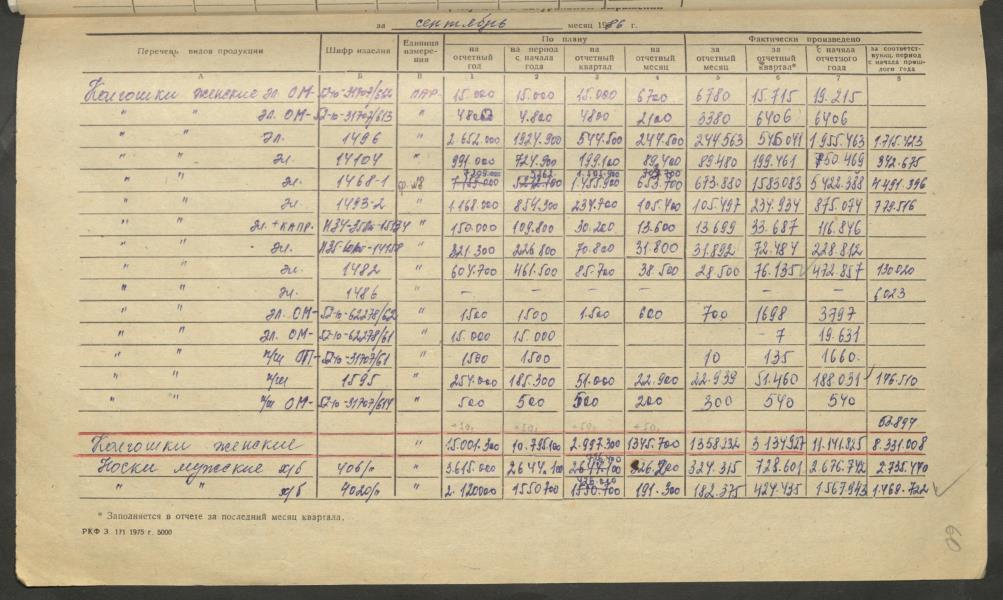 за сентябрь месяц 1986 г.
Перечень видов продукции Шифр изделия Единица измерения По плану Фактически произведено
на отчетный год на период с начала года на отчетный квартал на отчетный месяц за отчетный месяц за отчетный квартал* с начала отчетного года за соответствующ. период с начала прошлого года
А Б В 1 2 3 4 5 6 7 8
Колготки женские эл. ОМ- 52-10-31707/ пар. 15.000 15.000 15.000 6700 6780 15.715 19.215
" " эл. ОМ- 52-10-31707/613 " 4800 4.800 4800 2100 3380 6406 6406
" " эл. 1496 " 2.652.000 1924.900 544.500 244.500 244.563 1955.463 1.715.423
" " эл. 14104 " 991.000 724.900 199.100 89.400 89.480 199.461 750.469 942.675
" " эл. 1468-1 1.455.900 653.700 673.880 1583083 5422.388 4491.396
" " эл. 1493-2 " 1.168.000 854.300 234.700 105.400 105.497 234.934 875.074 779.516
" " эл.+капр. " 150.000 109.800 30.200 13.600 13.699 33.687 116.846
" " эл. " 321.300 226.800 70.800 31.800 31.892 72.484 228.812
" " эл. 1482 " 604.700 461.500 85.700 38.500 28.500 76.135 472.857 130020
" " эл. 1486 " – – – – – – – 6023
" " эл. ОМ- 52-10-62278/62 " 1500 1500 1500 600 700 1698 3797
" " эл. ОМ- 52-10-62278/61 " 15.000 15.000 – 7 19.631
" " п/ш 52-10-31707/61 " 1500 1500 10 135 1660
" " п/ш 1595 " 254.000 185.300 51.000 22.900 22.939 51.460 188.031 176.510
" " п/ш ОМ- 52-10-31707/614 " 500 500 500 200 300 540 540
63.897
Колготки женские " 15.001.300 10.795.100 2.997.300 1345.700 1358232 3.134.927 11.141.825 8.331.008
Носки мужские х/б 406/п " 3.615.000 2644.100 326.200 324.315 728.601 2.676.742 2.735.440
" " х/б 4020/п " 2.120000 1550700 1550.700 191.300 182.375 424.435 1.567943 1.769.722
* Заполняется в отчете за последний месяц квартала.
РКФ З. 171 1975 г. 5000
60